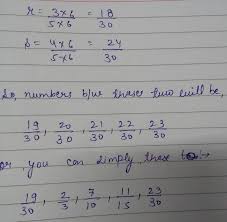 r = 3×6/5×6 = 18/30
s = 4×6/5×6 = 24/30
So, numbers b/w these two will be,
19/30, 20/30, 21/30, 22/30, 23/30
or, you can simply these to:-
19/30, 2/3, 7/10, 11/15, 23/30